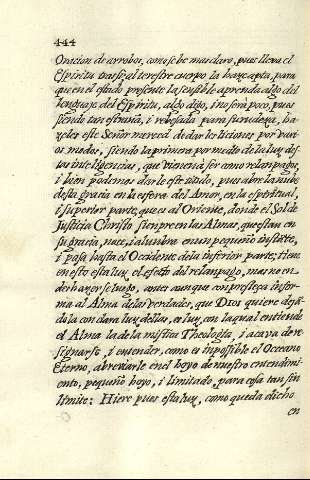 444
Oracion de arrobos, como se ve mas claro, pues lleva el
Espiritu trasi, al terestre cuerpo la haze apta, para
que en el estado presente lasensible aprenda algo del
lenguaje del Espiritu, algo digo, i no será poco, pues
siendo tan estraña, i rebozada para su rudeza, ha-
zeles este Señor merced de dar le liciones por vari-
os modos, siendo la primera por medio de la luz des-
tas inteligencias, que viene a ser como relampagos,
i bien podemos darle este titulo, pues abre la nube
desta gracia en la esfera del Amor, en la espiritual,
i superior parte, que es al Oriente, donde el Sol de
Justicia Christo siempre en las Almas, que estan en
su gracia, nace, i alumbra en un pequeño instante,
i pasa hasta el Occidente de la inferior parte; tiene
en esto esta luz el efecto del relampago, mas no en
deshazerse luego, antes aunque con presteza infor-
ma al Alma de las verdades, que DIOS quiere dejá-
dola con clara luz dellas, es luz, con la qual entiende
el Alma la de la mistica Theologia, i acaba de re-
signarse, i entender, como es impossible el Occeano
Eterno, abreviarle en el hoyo de nuestro entendimi-
ento, pequeño hoyo, i limitado para cosa tan sin
limite: Hiere pues esta luz, como queda dicho
en